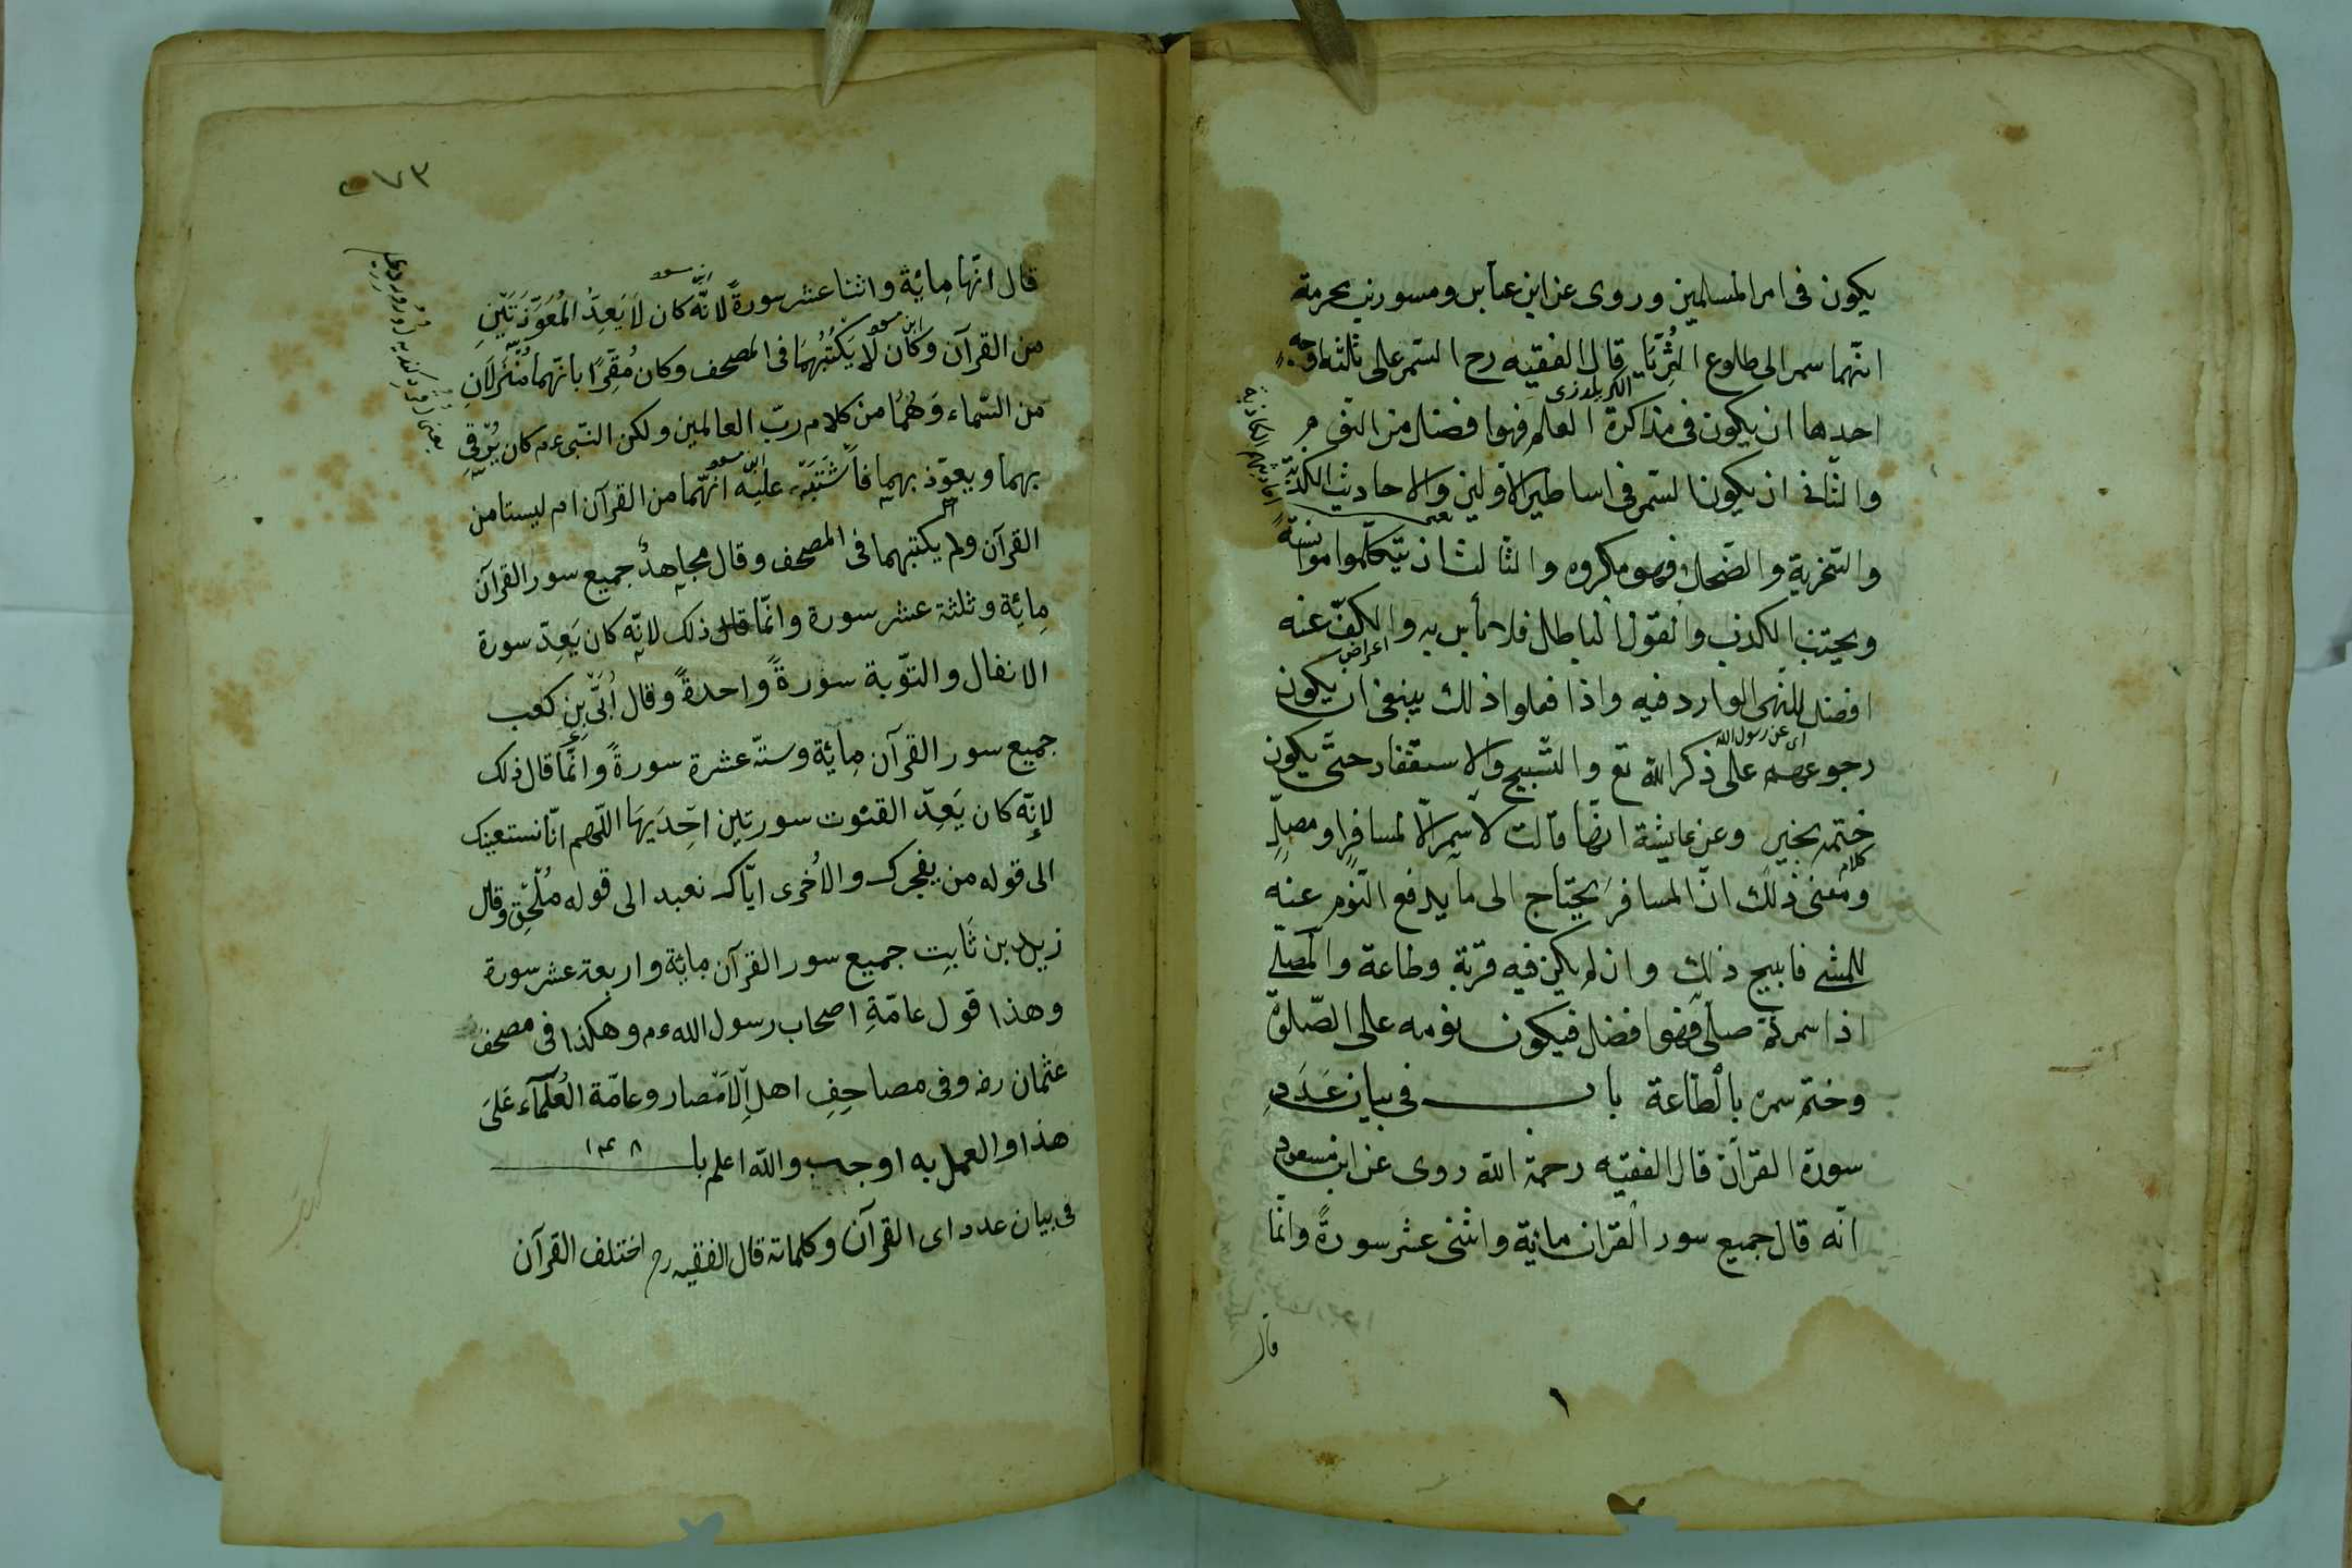 يكون فى امر المسلمين وروى عن ابن عبّاس ومسور بن مخرمة
انّهما سمر الى طلوع الثُّريّا قال الفقيه رح السّمر على ثلثة اوجه
احدها ان يكون فى مذاكرة العلم فهو افضل من النّوم
والثّانى ان يكون السّمر فى اساطير الاوّلين والاحاديث الكذبة
والسّخرية والضّحك فهو مكروه والثّالث ان يتكلّموا موانسةً
ويجتنب الكذب والقول الباطل فلا بأس به والكفّ عنه
اعراض
افضل للنّهى الوارد فيه واذا فعلوا ذلك ينبغى ان يكون
اى عن رسول الله
رجوعهم على ذكر الله تع والتّسبيح والاستغفار حتّى يكون
ختمه بخير وعن عايشة انّها قالت لا سمر الّا لمسافرٍ او مصلٍّ
كلام
ومعنى ذلك انّ المسافر يحتاج الى ما يدفع النّوم عنه
للمشى فابيح ذلك وان لم يكن فيه قربة وطاعة والمصلّى
اذا سمر ثمّ صلّى فهو افضل فيكون نومه على الصّلوة
وختم سمره بالطّاعة باب فى بيان عَدَدِ
سورة القرآن قال الفقيه رحمة الله روى عن ابن مسعود
انّه قال جميع سور القرآن ماية واثنى عشر سورةً وانّما
قال
١
٧٣
قال انّها مِائية واثنا عشر سورةً لانّه كان لَا يَعِدُّ المُعَوّذَتَيْنِ
ابن مسعود
من القرآن وكان لَا يَكْتُبُهُمَا فى المصحف وكان مُقِرًّا بانّهما مُنْزَلَانِ
من السّماء وَهُمَا من كلام ربّ العالمين ولكن النّبى ءم كان يُرْقِى
بهما ويعوّذ بهما فاَشْتَبَهَ عليه انّهما من القرآن ام ليستا من
ابن مسعود
القرآن ولم يكتبهما فى المصحف وقال مجاهدٌ جميع سور القرآن
مِائية وثلثة عشر سورة وانّما قال ذلك لانّه كان يَعِدّ سورة
الانفال والتّوبة سورةً واحدةً وقال اُبَىّ بنِ كعب
جميع سور القرآن مِائية وستّة عشرة سورةً وانّما قال ذلك
لانّه كان يَعِدّ القنوت سورتين احْدَيهَا اللّهم انّا نستعينك
الى قوله من يفجرك والاُخرى ايّاك نعبد الى قوله مُلْحِق وقال
زيد بن ثَابِت جميع سور القرآن ماية واربعة عشر سورة
وهذا قول عامّةِ اصحاب رسول الله ءم وهكذا فى مصحف
عثمان رضه وفى مصاحِفِ اهل الاَمْصار وعامّة العُلَمَآء عَلىَ
هذا والعمل به اوجب والله اعلم باب ١٣٨
فى بيان عدد اى القرآن وكلماته قال الفقيه رح اختلف القرآن